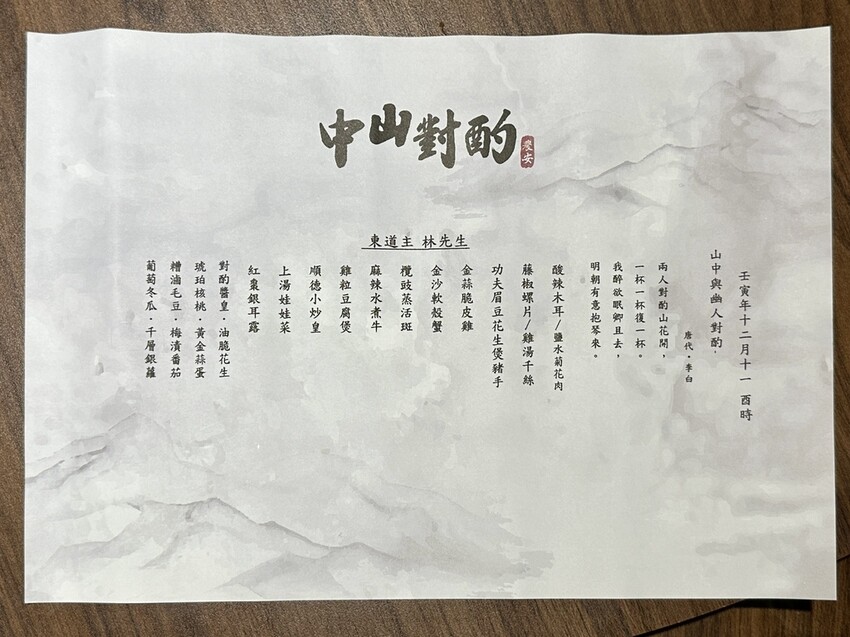 中山對酌
農安
東道主 林先生
壬寅年十二月十一 酉時
山中與幽人對酌，
唐代·李白
兩人對酌山花開，
一杯一杯復一杯。
我醉欲眠卿且去，
明朝有意抱琴來。
酸辣木耳/鹽水菊花肉
藤椒螺片/雞湯千絲
功夫眉豆花生煲豬手
金蒜脆皮雞
金沙軟殼蟹
欖豉蒸活斑
麻辣水煮牛
雞粒豆腐煲
順德小炒皇
上湯娃娃菜
紅棗銀耳露
對酌醬皇·油脆花生
琥珀核桃·黃金蒜蛋
糟滷毛豆·梅漬番茄
葡萄冬瓜·千層銀蘿